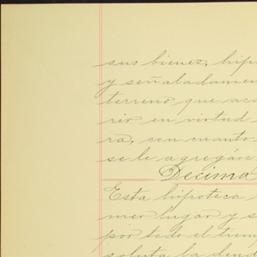 sus bienes, hipo
y señaladamen
terreno que ac
rio en virtud
ra, con cuanto
se le agregan
Decima
Esta hipoteca
mer lugar y
por todo el tiem
soluta la deud